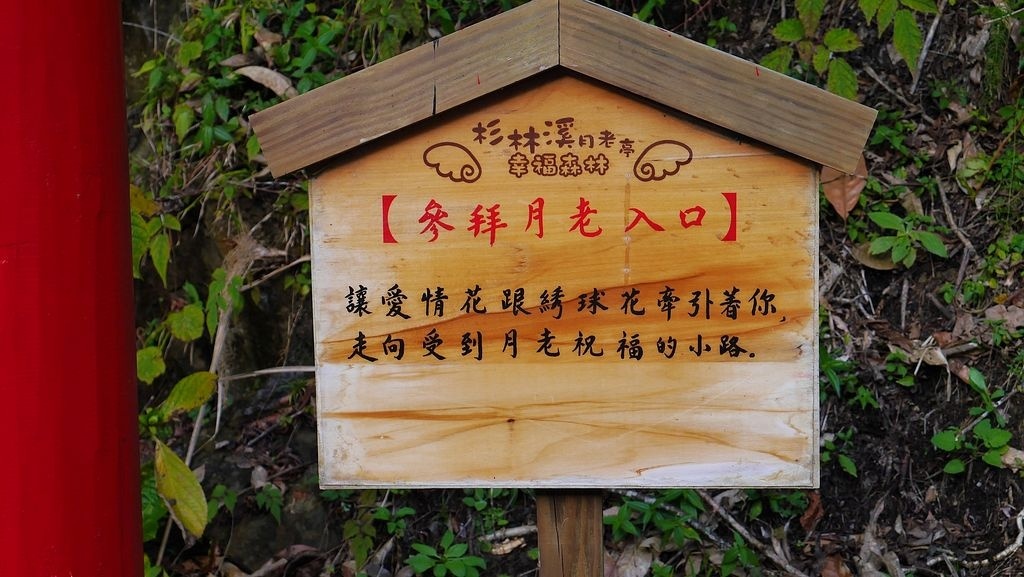 杉林溪月老亭
幸福森林
【參拜月老入口】
讓愛情花跟綉球花牽引著你,
走向受到月老祝福的小路.